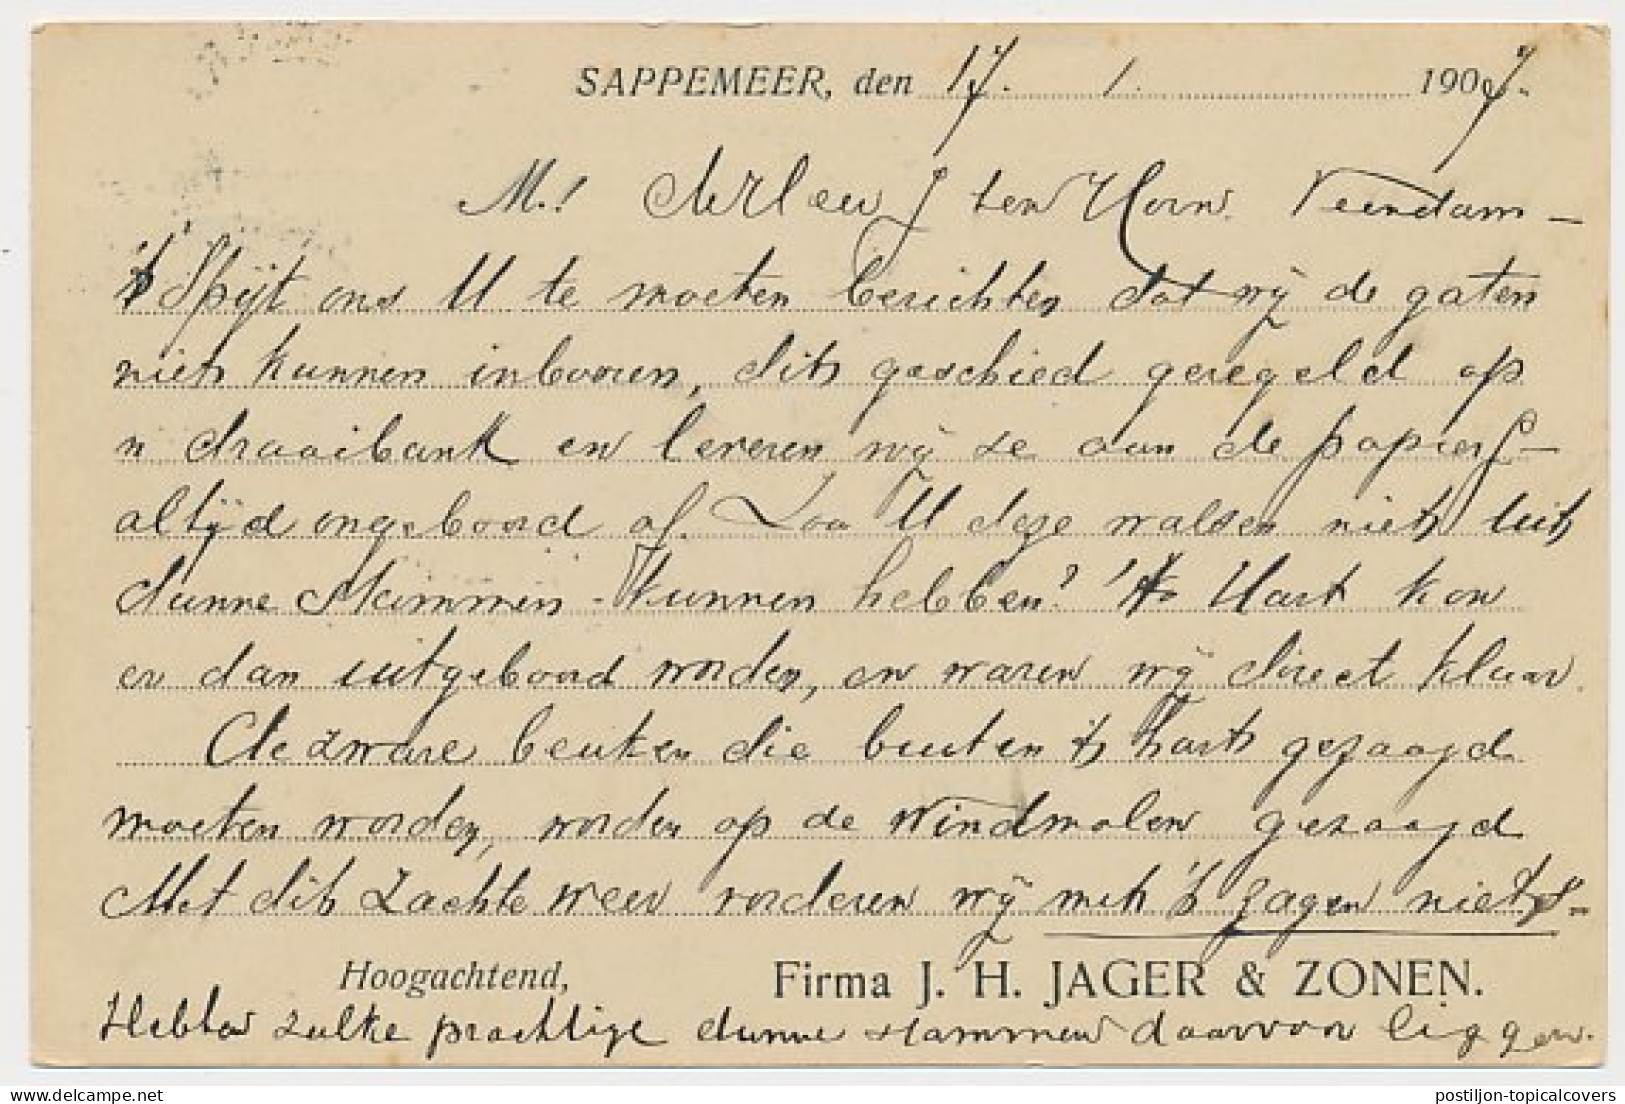 SAPPEMEER, den 17. 1. 1907.
M.! ten Horn. Veendam -
't Spijt ons U te moeten berichten dat wij de gaten
niet kunnen inbooren, dit geschied geregeld op
n draaibank en leveren wij ze aan de papierf-
altijd ongeboord af. Zou U deze walsen niet uit
dunne stammen - kunnen hebben? 't Hart kon
er dan uitgeboord worden, en waren wij direct klaar.
De zware beuken die buiten 't hart gezaagd
moeten worden, worden op de windmolen gezaagd
Met dit zachte weer vorderen wij met 't zagen niets -
Hoogachtend, Firma J. H. JAGER & ZONEN.
Hebben zulke prachtige dunne stammen daarvoor liggen.
postiljon-collections.com postiljon-topicalcovers